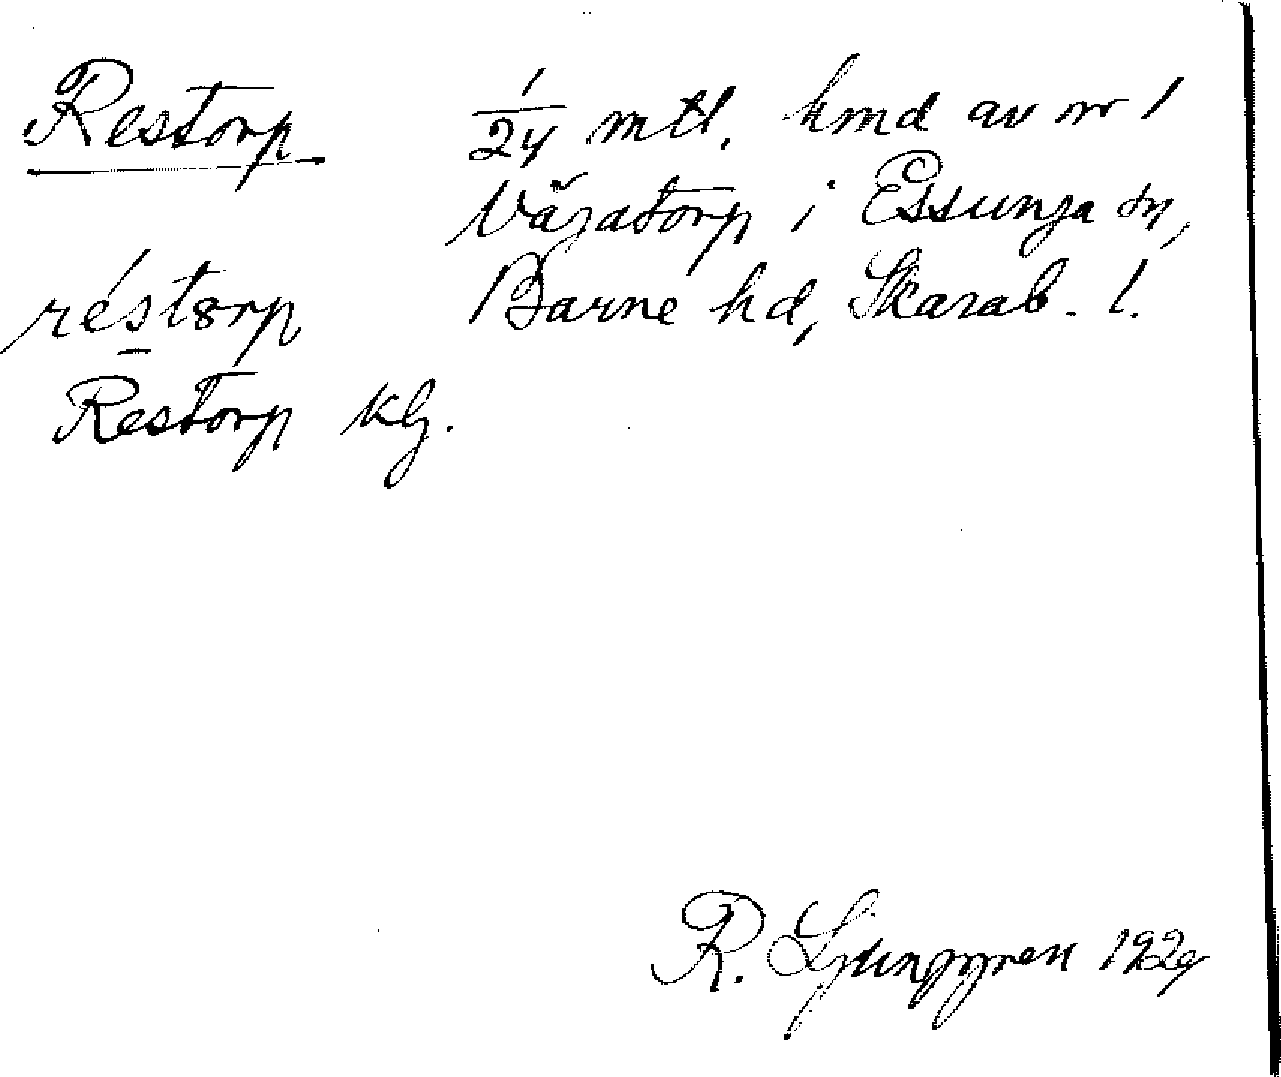 Restorp 1/24 mtl. hmd av nr 1
Vägatorp i Essunga sn,
réstorp Barne hd, Skarab. l.
Restorp klj.
R. Ljunggren 1929